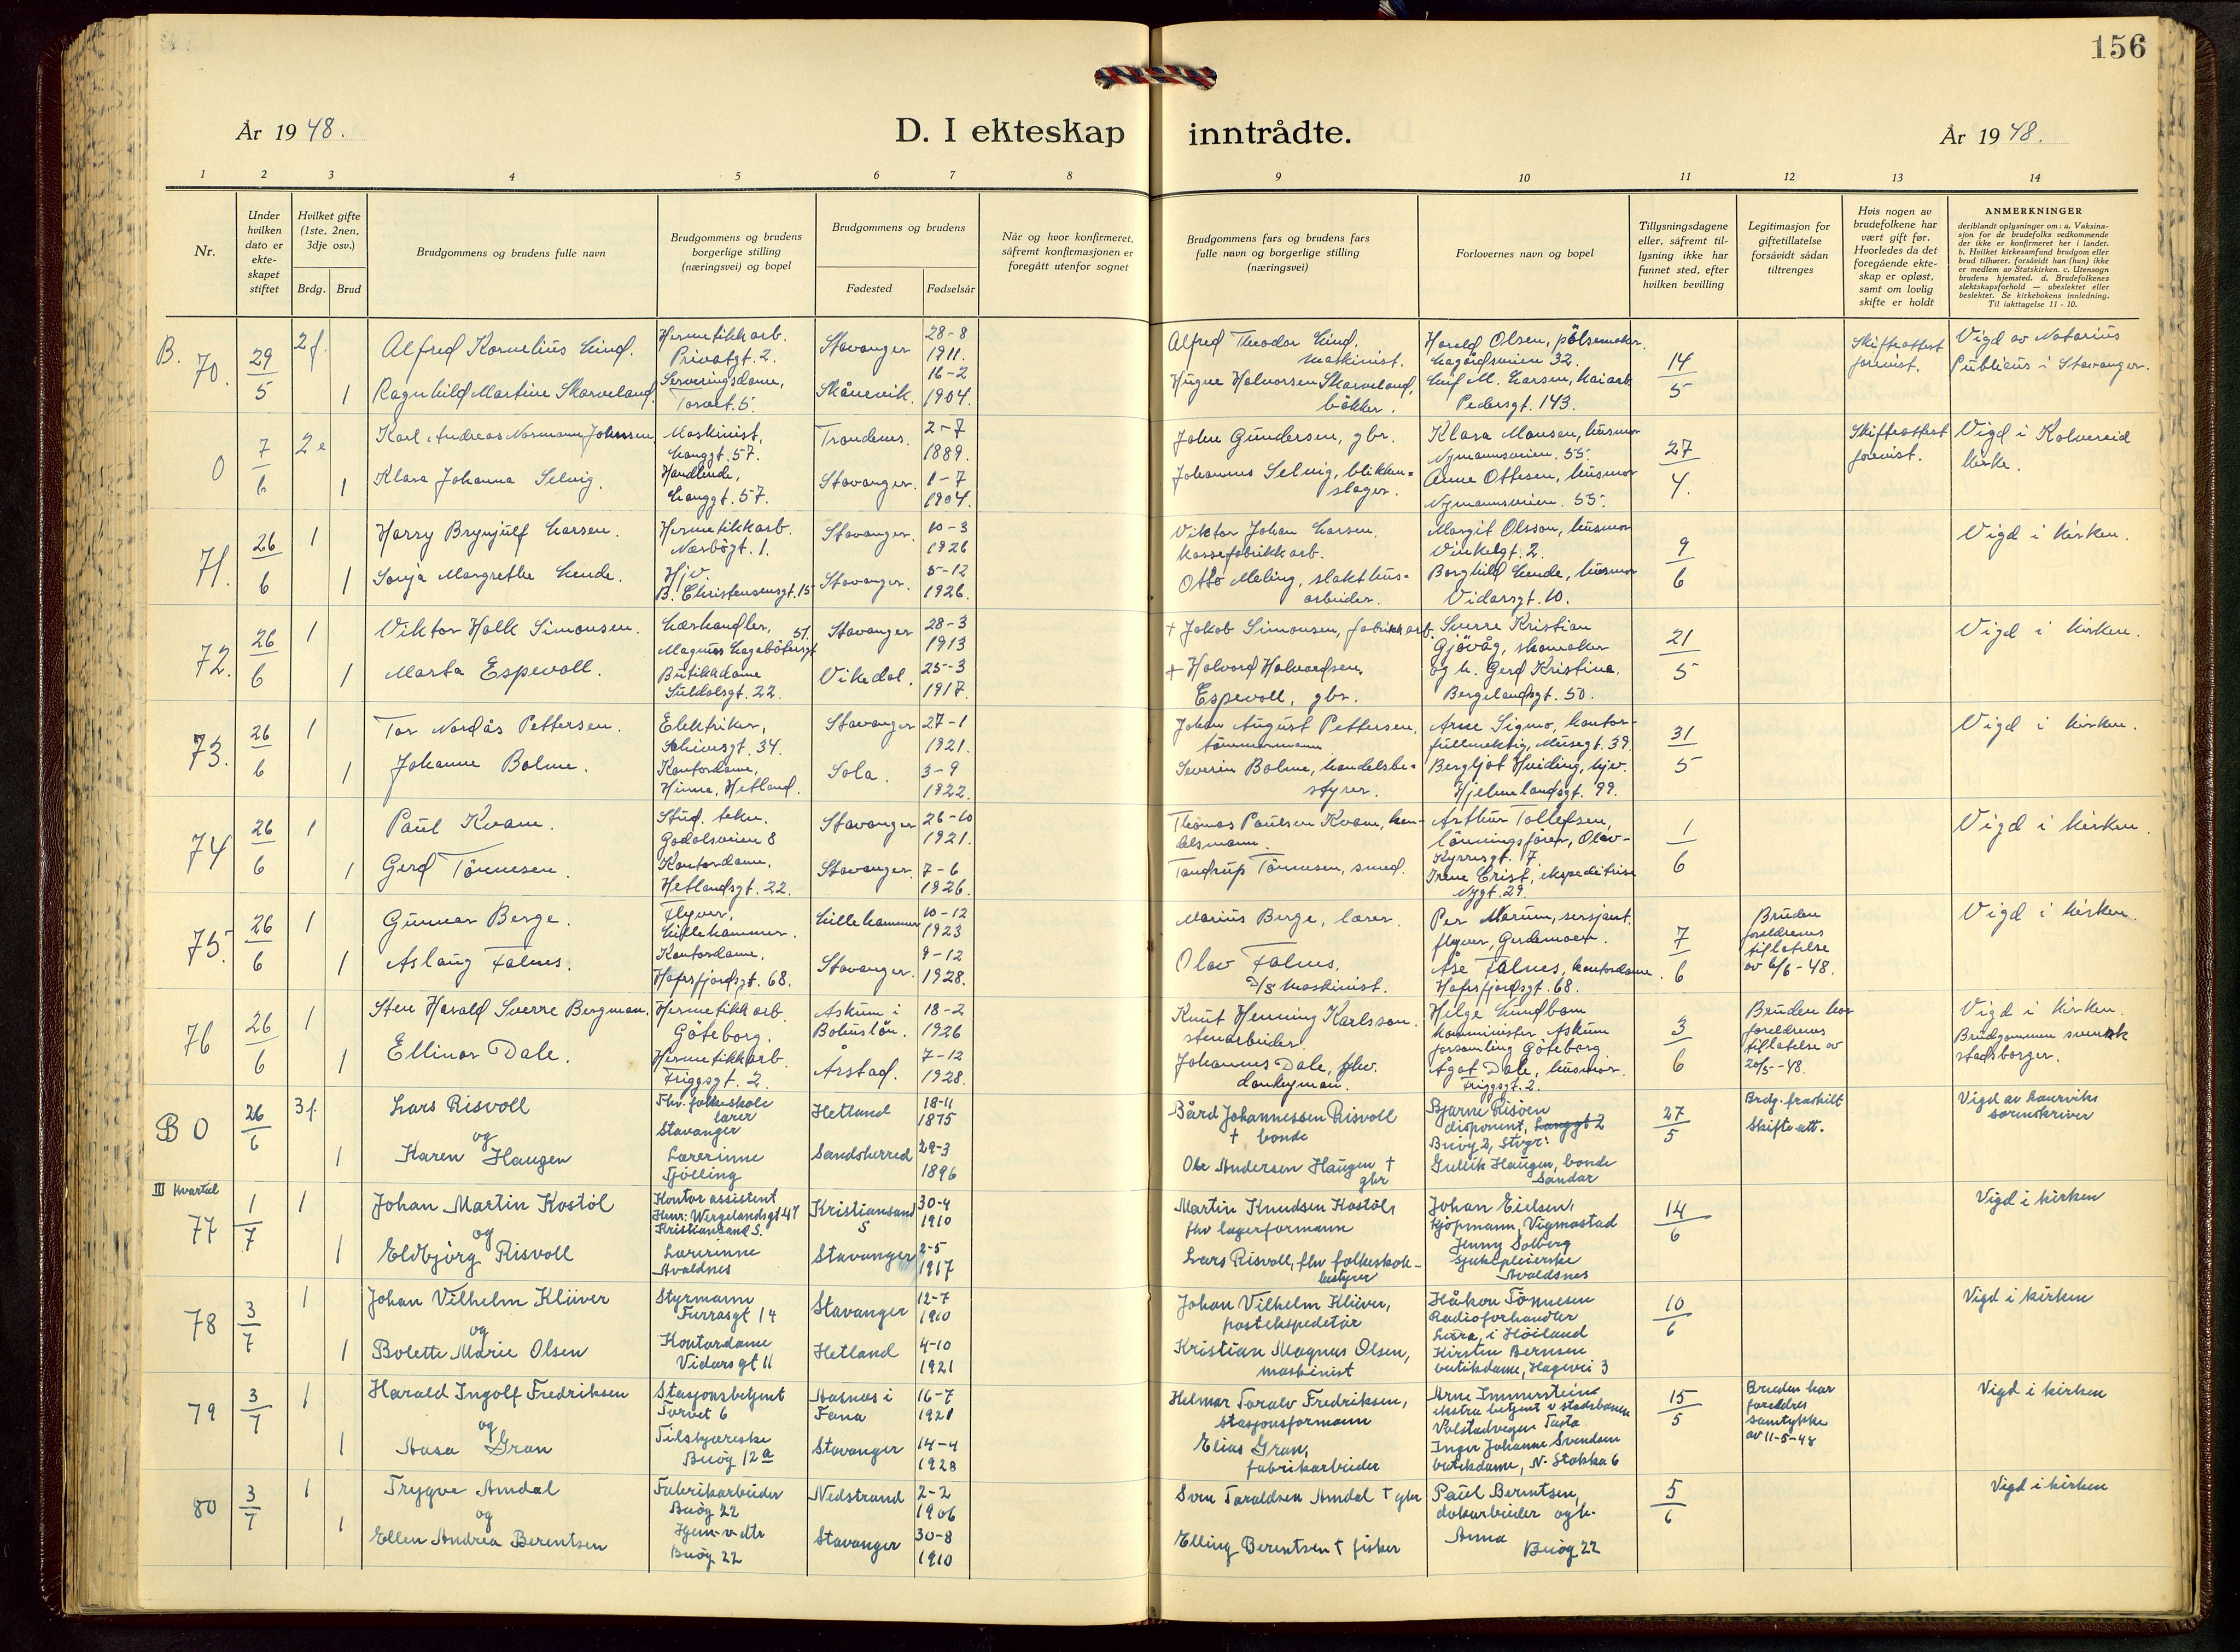 156
År 1948.
D. I ekteskap inntrådte.
År 1948.
1 2 3 4 5 6 7 8 9 10 11 12 13 14
Nr.
Under hvilken dato er ekte-skapet stiftet
Hvilket gifte (1ste, 2nen, 3dje osv.)
Brdg. Brud
Brudgommens og brudens fulle navn
Brudgommens og brudens borgerlige stilling (næringsvei) og bopel
Brudgommens og brudens
Fødested Fødselsår
Når og hvor konfirmeret, såfremt konfirmasjonen er foregått utenfor sognet
Brudgommens fars og brudens fars fulle navn og borgerlige stilling (næringsvei)
Forlovernes navn og bopel
Tillysningsdagene eller, såfremt til-lysning ikke har funnet sted, efter hvilken bevilling
Legitimasjon for giftetillatelse forsåvidt sådan tiltrenges
Hvis nogen av brudefolkene har vært gift før. Hvorledes da det foregående ekte-skap er opløst, samt om lovlig skifte er holdt
ANMERKNINGER
deriblandt oplysninger om: a. Vaksina-sjon for de brudefolks vedkommende der ikke er konfirmeret her i landet. b. Hvilket kirkesamfund brudgom eller brud tilhører, forsåvidt han (hun) ikke er medlem av Statskirken. c. Utensogn brudens hjemsted. d. Brudefolkenes slektskapsforhold — ubeslektet eller beslektet. Se kirkebokens innledning. Til iakttagelse 11 - 10.
B. 70. 29/5 2f. Alfred Kornelius Lind. Hermetikkarb. Privatgt. 2. Stavanger 28-8 1911.
Alfred Theodor Lind. maskinist. Harald Olsen, pölsemaker. Lagårdsveien 32. 14/5 Skifteattest forevist. Vigd av Notarius Publicus i Stavanger.
1 Ragnhild Martine Skarveland. Serveringsdame, Torvet. 5. Skånevik. 16-2 1904.
Halvorsen Skarveland, Leif M. Larsen, kaiarb. Pedersgt. 143.
0 7/6 2e Karl Andreas Normann Johnsen Maskinist, Langgt. 57. Trondenes. 2-7 1889.
John Gundersen, gbr. Klara Hansen, husmor Nymannsveien. 55. 27/4. Skifteattest forevist. Vigd i Kolvereid kirke.
1 Klara Johanna Selvig. Handlende, Langgt. 57. Stavanger. 1-7 1904.
Johannes Selvig, blikken=slager. Anne Ottesen, husmor Nymannsveien. 55.
71. 26/6 1 Harry Brynjulf Larsen. Hermetikkarb. Nærbögt. 1. Stavanger. 10-3 1926
Viktor Johan Larsen, kassefabrikkarb. Margit Olsson, husmor Vinkelgt. 2. 9/6 Vigd i kirken.
1 Sonja Margrethe Lende. Hjv. B. Christensensgt. 15 Stavanger. 5-12 1926.
Otto Meling, slakthus=arbeider. Borghild Lende, husmor Vidarsgt. 10.
72. 26/6 1 Viktor Halk Simonsen. Lærhandler, Magnus Lagabötersgt 51. Stavanger 28-3 1913
+ Jakob Simonsen, fabrikkarb. Sverre Kristian Gjövåg, skomaker 21/5 Vigd i kirken.
1 Marta Espevoll. Butikkdame Suldalsgt. 22. Vikedal. 25-3 1917.
+ Halvard Halvardsen Espevoll, gbr. og h. Gerd Kristine, Bergelandsgt. 50.
73. 26/6 1 Tor Nordås Pettersen. Elektriker, Schivesgt. 34. Stavanger 27-1 1921.
Johan August Pettersen, tömmermann Arne Sigmo, kontor-fullmektig, Musegt. 39. 31/5 Vigd i kirken.
1 Johanne Bolme. Kontordame, Hinna, Hetland. Sola. 3-9 1922.
Severin Bolme, handelsbe=styrer. Bergljot Hviding, hjv. Hjelmelandsgt. 99.
74 26/6 1 Paul Kvam. Stud. tekn. Godalsveien 8 Stavanger 26-10 1921.
Thomas Paulsen Kvam, len-delsmann. Arthur Tollefsen, lönningsförer, Olav-Kyrresgt. 7 1/6 Vigd i kirken.
1 Gerd Tönnesen. Kontordame, Hetlandsgt. 22. Stavanger. 7-6 1926.
Tandrup Tönnesen, smed. Irene Crist, ekspeditrise Nygt. 29
75. 26/6 1 Gunnar Berge. Flyver, Lillehammer. Lillehammer 10-12 1923
Marius Berge, lærer. Per Marum, sersjant. flyver, Gardemoen. 7/6 Bruden foreldrenes tillatelse av 6/6-48. Vigd i kirken.
1 Aslaug Falnes. Kontordame, Hafrsfjordsgt. 68. Stavanger. 9-12 1928.
Olav Falnes, D/S Maskinist. Åse Falnes, kontordame. Hafrsfjordsgt. 68.
76 26/6 1 Sten Harald Sverre Bergman. Hermetikkarb. Göteborg. Askum i Bohuslän. 18-2 1926
Knut Henning Karlsson. stenarbeider. Helge Lundbom komminister Askum forsamling Göteborg 3/6 Bruden har foreldrenes tillatelse av 20/5-48. Vigd i kirken. Brudgommen svensk stadsborger.
1 Ellinor Dale. Hermetikkarb. Friggsgt. 2. Årstad. 7-12 1928.
Johannes Dale, fhv. donkeyman. Ågot Dale, husmor. Friggsgt. 2.
B 0 26/6 3f. Lars Risvoll Fhv. folkeskole lærer Stavanger Hetland 18-11 1875
Bård Johannessen Risvoll + bonde Bjarne Risöen disponent, Langgt 2 Buöy 2, Stvgr. 27/5 Brdg. fraskilt Skifte att. Vigd av Laurviks sorenskriver
og
1 Karen Haugen Lærerinne Tjölling Sandeherred 29-3 1896
Ole Andersen Haugen + gbr Gullik Haugen, bonde Sandar
III Kvartal
77 1/7 1 Johan Martin Kostöl Kontor assistent Henr: Wergelandsgt 47 Kristiansand S. Kristiansand S 30-4 1910
Martin Knudsen Kostöl, fhv lagerformann Johan Eielsen, kjöpmann, Vigmostad 14/6 Vigd i kirken
og
1 Eldbjörg Risvoll Lærerinne Avaldnes Stavanger 2-5 1917
Lars Risvoll, fhv folkeskole-bestyrer Jenny Solberg sjukepleierske Avaldsnes
78 3/7 1 Johan Vilhelm Klüver Styrmann Furrasgt 14 Stavanger 12-7 1910
Johan Vilhelm Klüver, postekspeditör Håkon Tönnesen Radioforhandler Lura, i Höiland 10/6 Vigd i kirken
og
1 Bolette Marie Olsen Kontordame Vidarsgt 11 Hetland 4-10 1921
Kristian Magnus Olsen, maskinist Kirsten Berntsen butikdame, Hagevei 3
79 3/7 1 Harald Ingolf Fredriksen Stasjonsbetjent Torvet 6 Aasnes i Fana 16-7 1921
Helmar Toralv Fredriksen, stasjonsformann Arne Immerstein ekstra betjent v statsbanen Volstadvegen Tasta 15/5 Bruden har foreldres samtykke av 11-5-48 Vigd i kirken
og
1 Aasa Gran Tilskjæreske Buöy 12a Stavanger 14-4 1928
Elias Gran, fabrikarbeider Inger Johanne Svendsen butikdame, N. Stokka 6
80 3/7 1 Trygve Amdal Fabrikarbeider Buöy 22 Nedstrand 2-2 1906
Sven Taraldsen Amdal + gbr Paul Berntsen, dokarbeider og h. 5/6 Vigd i kirken
og
1 Ellen Andrea Berentsen Hjem-v-dtr Buöy 22 Stavanger 30-8 1910
Elling Berentsen + fisker Anna Buöy 22